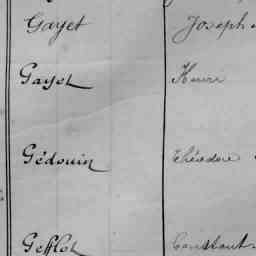 Gayet Joseph
Gayet Henri
Gédouin Théodore
Gefflot Constant